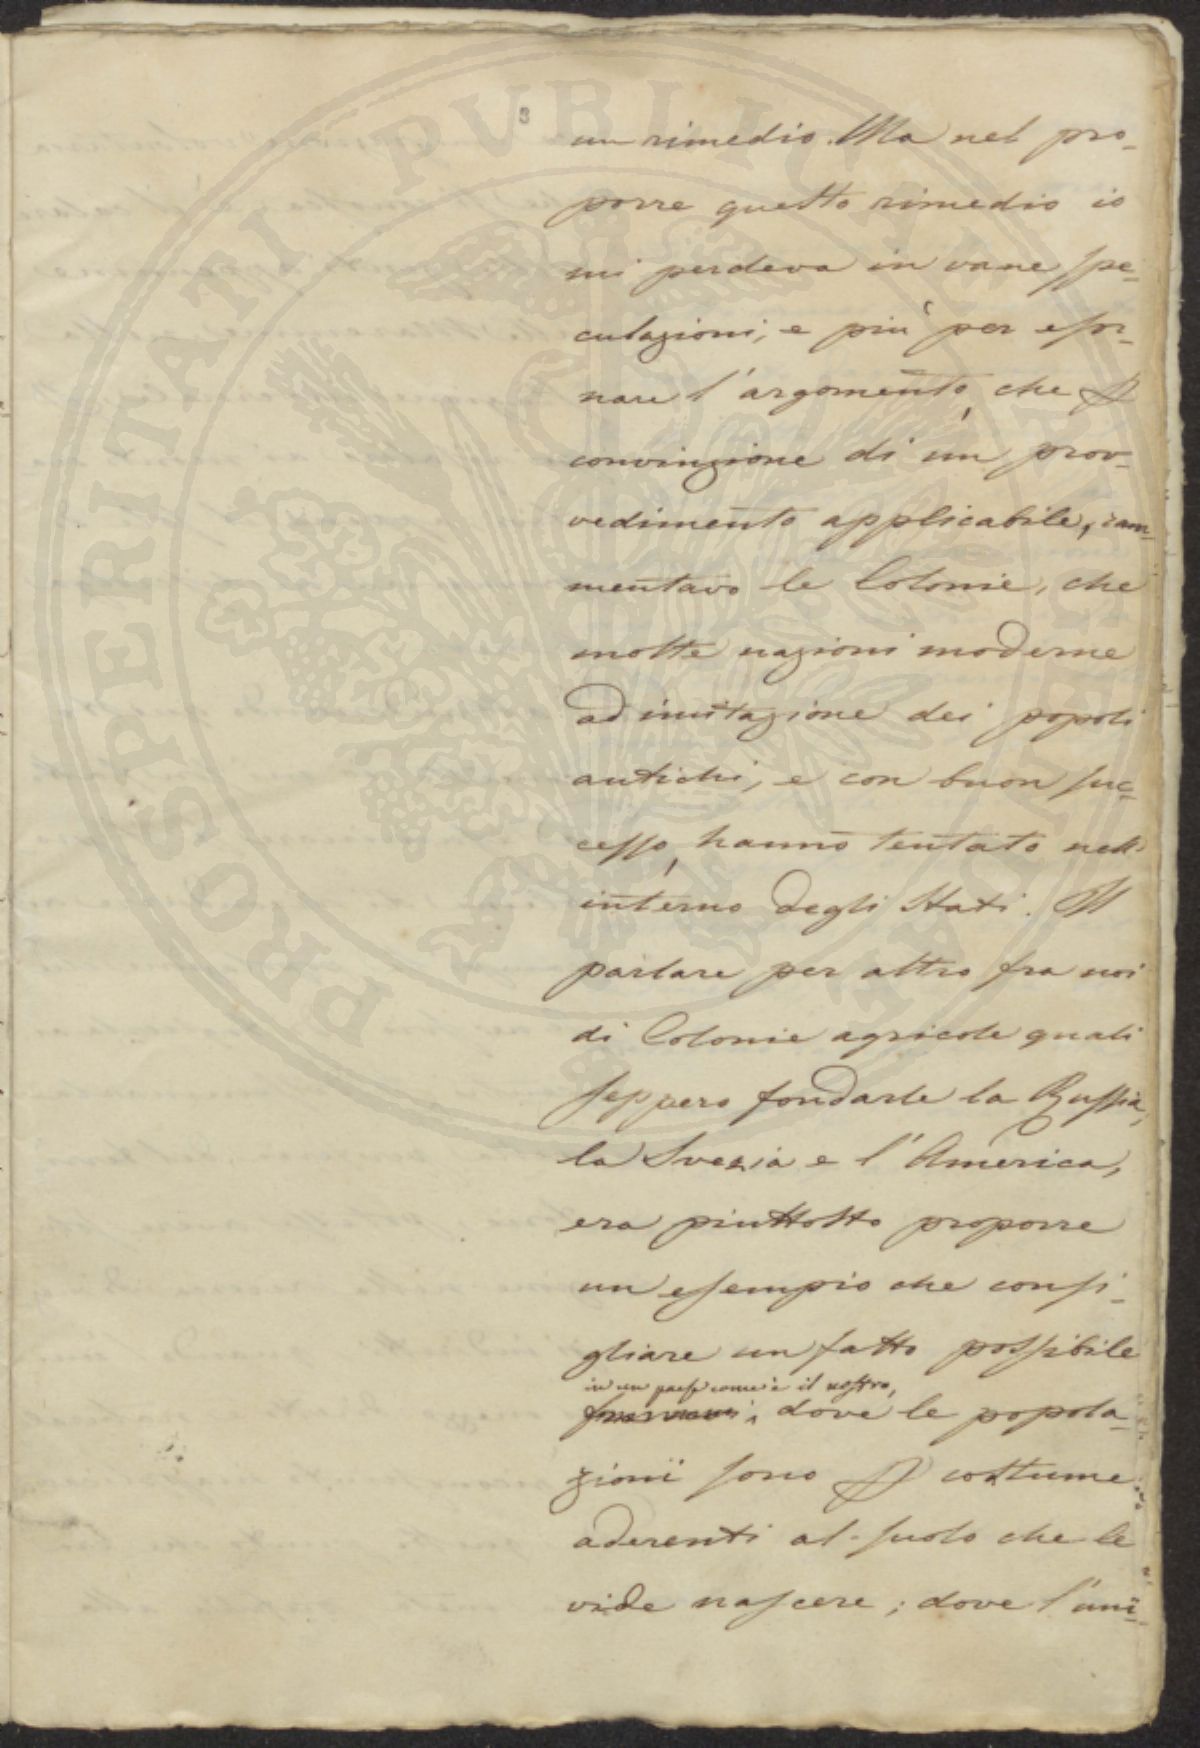 3
un rimedio. Ma nel pro-
porre questo rimedio io
mi perdeva in vane spe-
culazioni, e più per esor-
nare l'argomento, che
convinzione di un prov-
vedimento applicabile, ram-
mentavo le Colonie, che
molte nazioni moderne
ad imitazione dei popoli
antichi, e con buon suc-
cesso, hanno tentato nell'
interno degli Stati. Il
parlare per altro fra noi
di Colonie agricole quali
seppero fondarle la Russia,
la Svezia e l'America,
era piuttosto proporre
un esempio che consi-
gliare un fatto possibile
in un paese come è il nostro,
dove le popola-
zioni sono costume
aderenti al suolo che le
vide nascere; dove l'uni-
PROSPERITATI PUBLICAE AUGENDAE